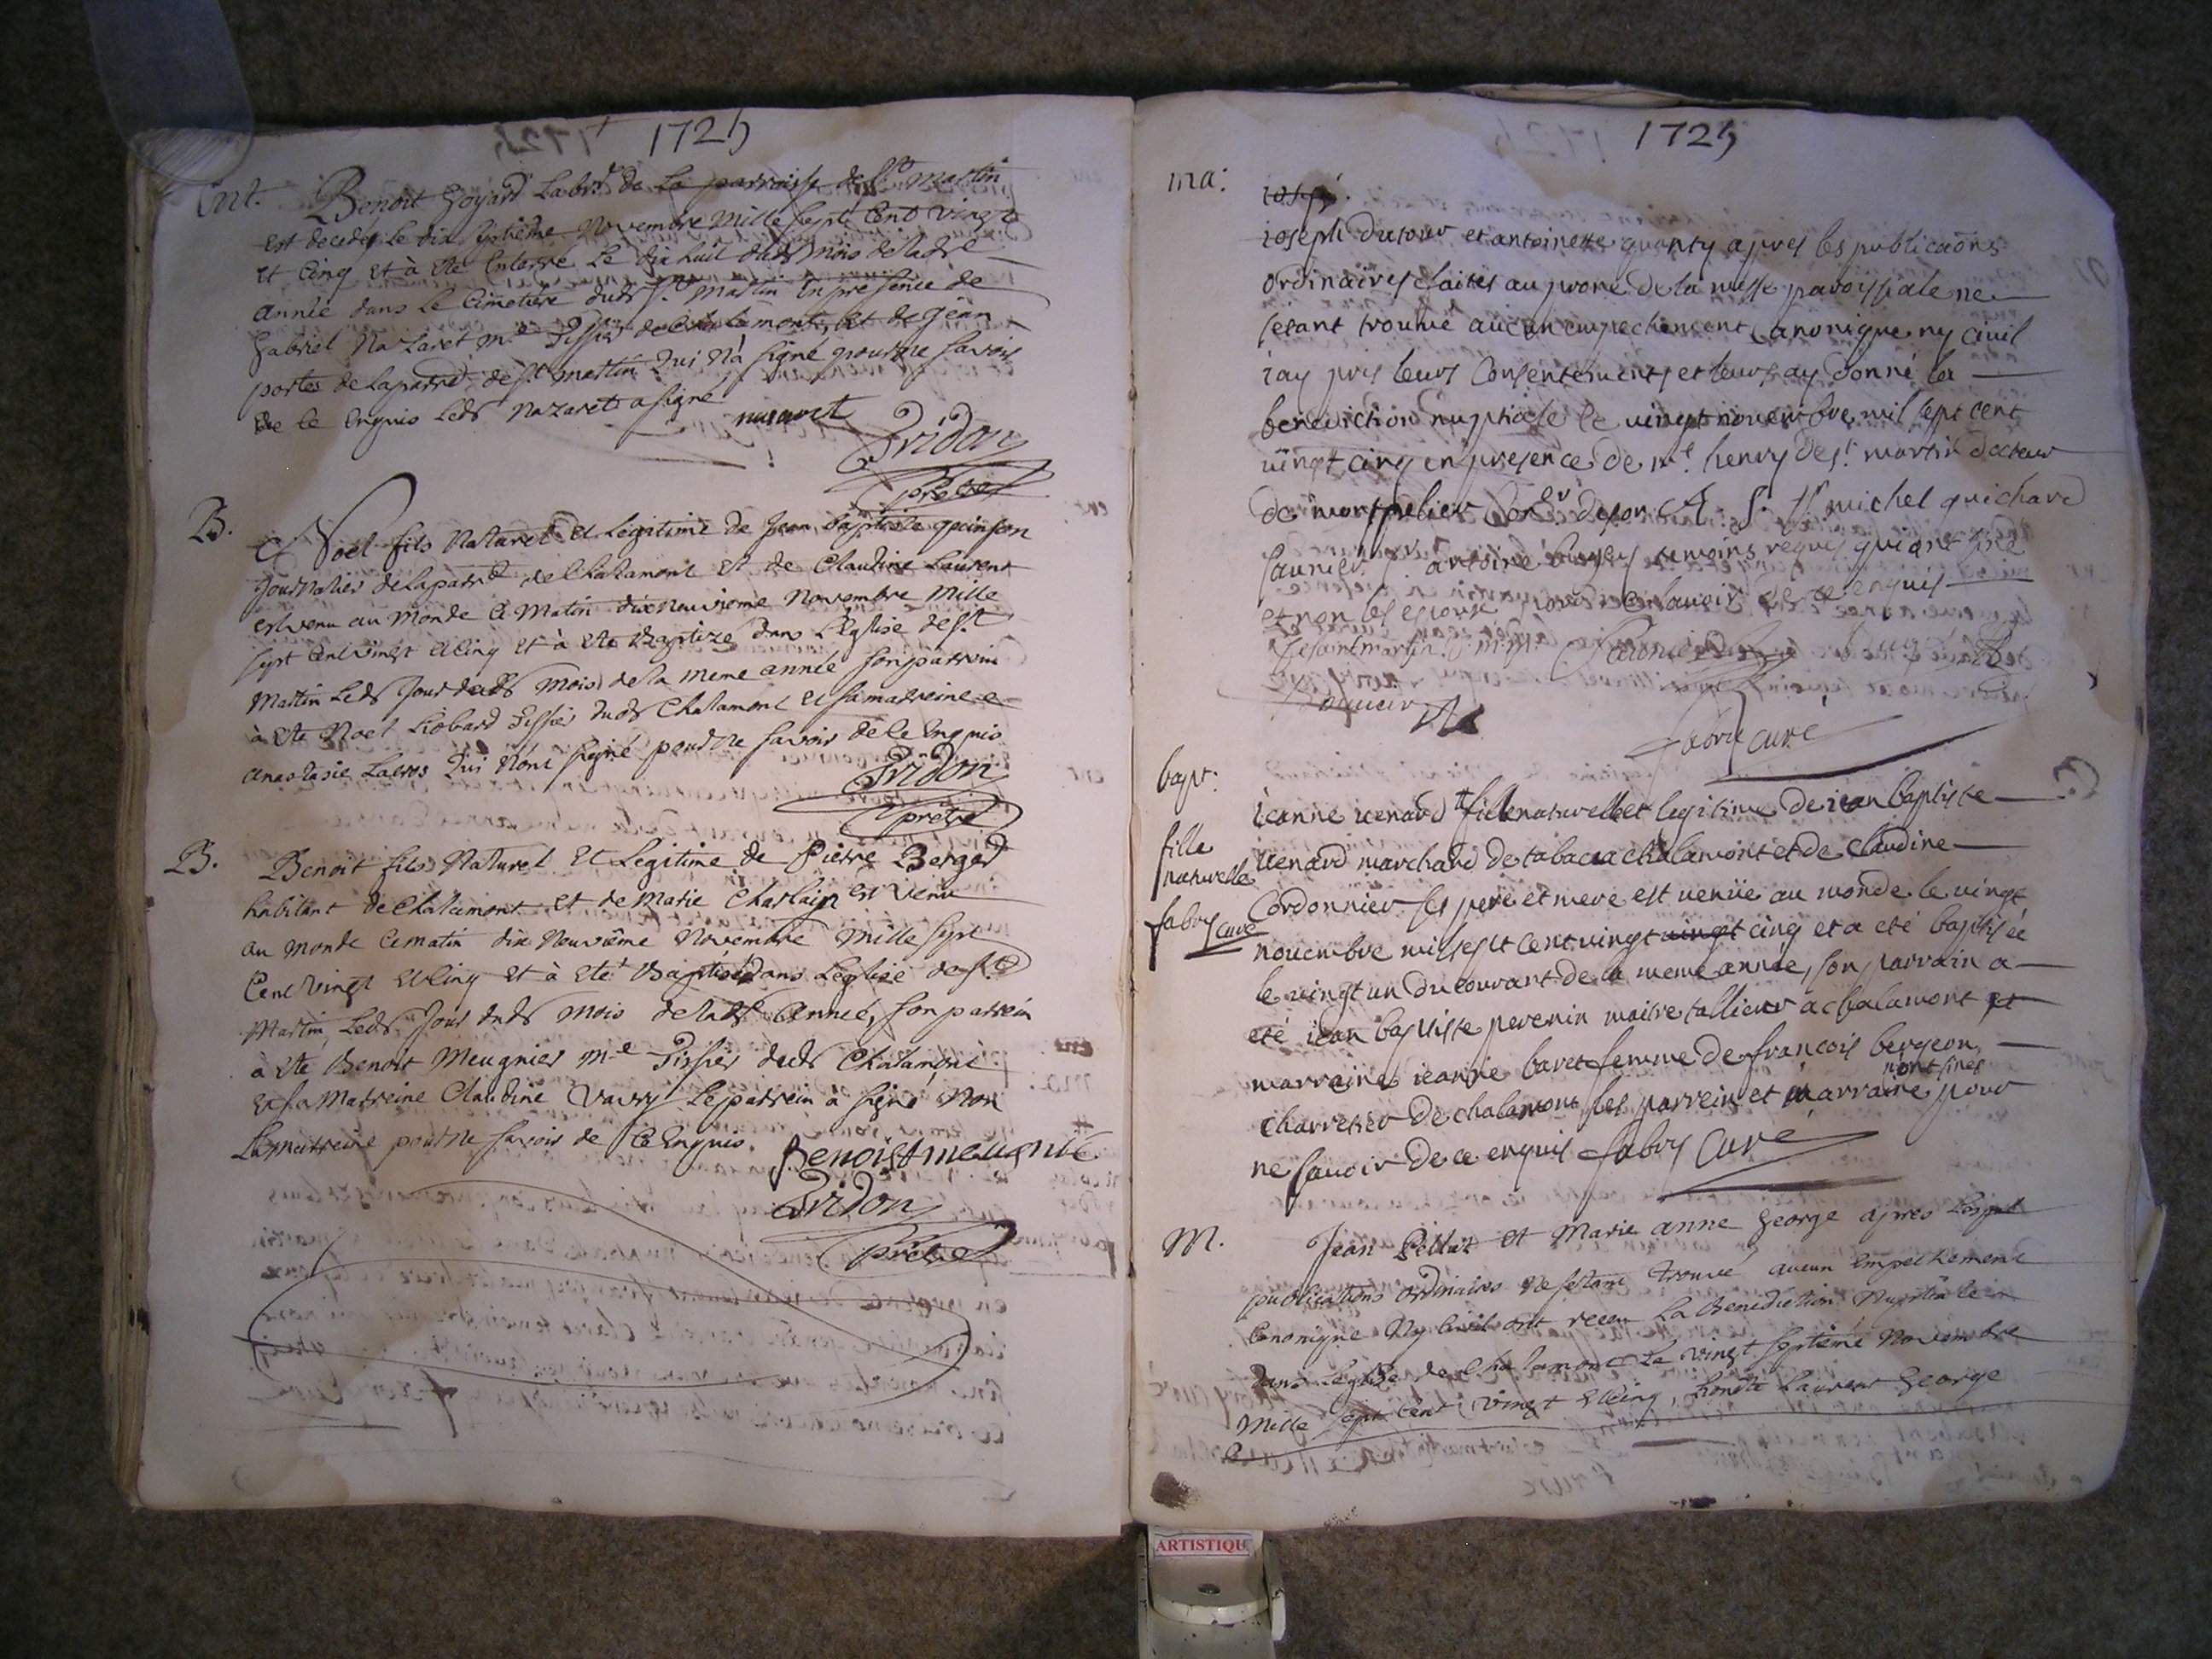 1725
Ent. Benoit Goyard Labr.r de La parroisse de St Martin
est decedez le dix septième Novembre Mille sept Cent vingt
et Cinq et à Eté Enterre Le dix huit dudt Mois de ladte
année dans Le Cimetiere dudt St Martin En presence de
Gabriel Nazaret Me Tissier de Chalamont, et de Jean
portes de laparre de St Martin Qui N'a signé pour Ne savoir
de ce Enquis Ledt Nazaret a signé
nazaret
Pridon
prêtre
B. Noel fils Naturel et Legitime de Jean Baptiste quinson
Journalier de laparre de Chalamont et de Claudine Laurent
est venu au Monde Ce Matin dix Neuvieme Novembre Mille
sept Cent vingt et Cinq et à Eté Baptizé dans L'Eglise de St
Martin Ledt Jour dudt Mois de la meme année son parrein
à Eté Noel Robard Tissier dudt Chalamont et sa marreine
anastasie Qui N'ont signé pour Ne savoir de Ce Enquis
Pridon
prêtre
B. Benoit fils Naturel Et Legitime de Pierre Berger
habitant de Chalamont et de Marie Charlain est venu
au Monde Ce matin dix Neuvième Novembre Mille sept
Cent Vingt et Cinq et à Eté Baptisé dans L'eglise de St
Martin, Ledt Jour dudt Mois de ladt Année, son parrein
à Eté Benoit Meugnier Me Tissier dudt Chalamont
et sa Marreine Claudine Vavry Le parrein a signé Non
La Marreine pour Ne savoir de Ce Enquis.
Benoist meugnie
Pridon
prêtre
1725
ma:
ioseph
ioseph dutour et antoinette quanty apres les publicaõns
ordinaires faites au prone de la messe paroissiale ne
sesant trouvé aucun empechement canonique ny civil
iay pris leurs Consentements et leurs ay donné la
benediction nuptiale le vingt novembre mil sept cent
vingt cinq en presence de mre henry de st martin docteur
de montpelier michel guichard
saunier antoine temoins requis qui ont siné
et non les espoux pour ne savoir de ce enquis
De saint martin. m.m. Saunier
fabri curé
bapt: ieanne venard # fille naturelle et legitime de iean baptiste
fille venard marchand de tabac a chalamont et de Claudine
naturelle Cordonnier ses pere et mere est venüe au monde le vingt
fabry curé novembre mil sept cent vingt vingt cinq et a eté baptisée
le vingt un du courant de la meme année, son parrain a
eté iean baptiste perenin maitre tallieur a chalamont et
marraine ieanne baret femme de francois bergeon
n'ont sinez
charretier de chalamont, les parrein et marraine pour
ne savoir de ce enquis fabry Curé
M. Jean Pellat et Marie anne George apres Les
publications ordinaires Ne s'estant trouvé aucun Empechement
Canonique Ny Civil ont receu La Benediction Nuptiale
dans L'eglise de Chalamont Le vingt septième Novembre
Mille sept Cent vingt et Cinq, honête Laurent George
ARTISTIQU